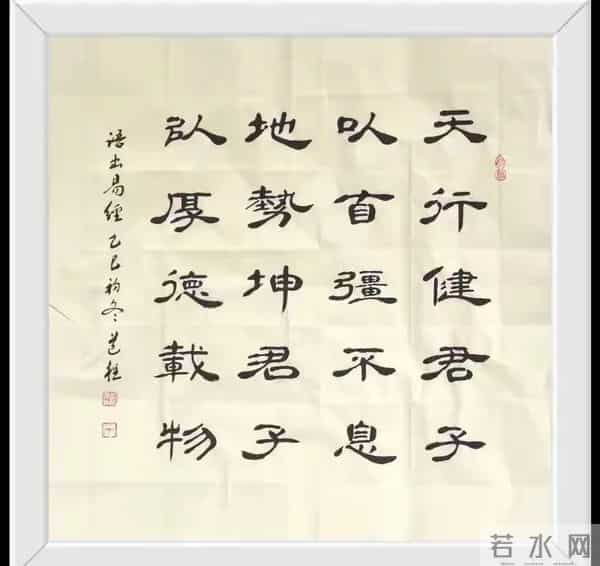 天行健君子
以自彊不息
地勢坤君子
以厚德載物
語出易經 乙巳初冬
若水网